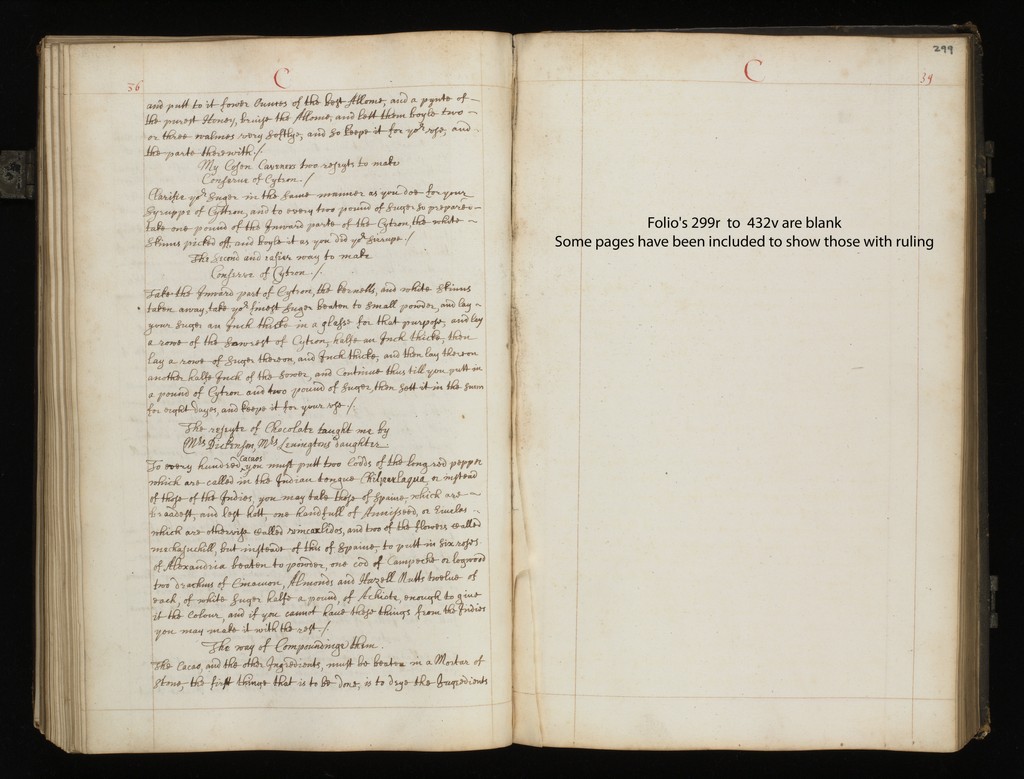 36
C
and putt to it fower Ounces of the best Allome, and a pynte of
the purest Honey, bruise the Allome, and lett them boyle two
or three walmes very softlye, and so keepe it for yor use, and
the parte therewith /.
My Cosen Caveners two reseyts to make
Conserue of Cytron. /
Clarifie yor Suger in the same manner as you doe for your
Syruppe of Cyttron, and to every two pound of Suger so prepare
take one pound of the Inward parte of the Cytron, the white
skinns picked off, and boyle it as you did yor Sirrupe /
The second and easier way to make
Conserve of Cytron. /.
Take the Inward part of Cytron, the kernells, and white skinns
taken away, take yor finest Suger beaten to small powder, and lay
your Suger an Inch thicke in a glasse for that purpose, and lay
a rowe of the sowrest of Cytron, halfe an Inch thicke, then
lay a rowe of Suger thereon, and Inch thicke, and then lay thereon
another halfe Inch of the sower, and Continue thus till you putt in
a pound of Cytron and two pound of Suger, then sett it in the sunn
for eight dayes, and keepe it for your use /.
The reseyte of Chocolate taught me by
Mrs Dickenson, Mrs Leningtons daughter.
Cacaos
To every hundred you must putt two Codds of the long red pepper
which are called in the Indian tongue Chilparlaqua, or instead
of those of the Indies, you may take those of Spaine which are
broadest, and lest hott, one handfull of Anniseed, or Euielas
which are otherwise called vincaxlidos, and two of the flowers called
mechasuchill, but insteade of this of Spaine, to putt in six roses
of Alexandria beaten to powder, one cod of Campeche or logwood
two drachms of Cinamon, Almonds and Hazell Nutts twelve of
each, of white Suger halfe a pound, of Achiote, enough to give
it the Colour, and if you cannot have these things from the Indies
you may make it with the rest /.
The way of Compoundinge them.
The Cacao, and the other Ingredients, must be beaten in a Mortar of
Stone, the first thinge that is to be done, is to drye the Ingredients
299
C
39
Folio's 299r to 432v are blank
Some pages have been included to show those with ruling